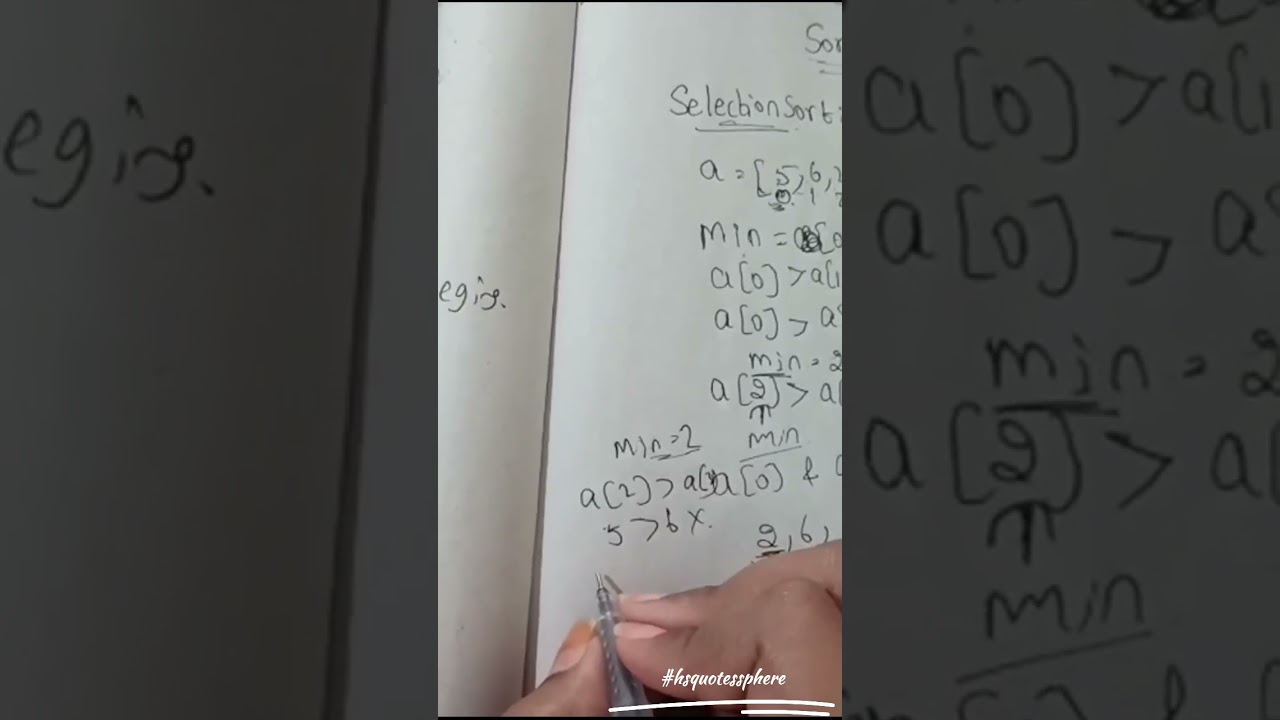 Sor
Selection Sort:
a = [5, 6, 2
0 1 2
min = a[0
a[0] > a[1
a[0] > a
min = 2
a[2] > a[
min
min = 2
a[2] > a[ a[0] &
5 > 6 X.
2, 6,
egin.
#hsquotessphere